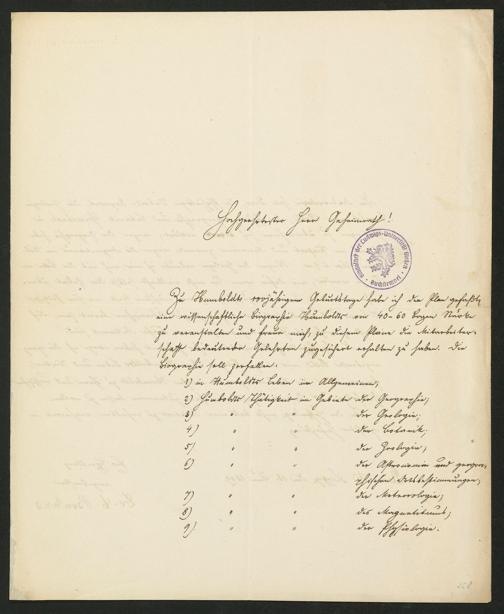 Hochgeehrtester Herr Geheimrath!
Zu Humboldts 100jährigem Geburtstage habe ich den Plan gefaßt,
eine wissenschaftliche Biographie Humboldts von 40-60 Bogen Stärke
zu veranstalten und freue mich, zu diesem Plane die Mitarbeiter-
schaft bedeutender Gelehrten zugesichert erhalten zu haben. Die
Biographie soll zerfallen:
1) in Humboldts Leben im Allgemeinen,
2) Humboldts Thätigkeit im Gebiete der Geographie,
3) " " der Geologie;
4) " " der Botanik,
5) " " der Zoologie,
6) " " der Astronomie und geogra-
phischen Ortsbestimmungen,
7) " " der Meteorologie,
8) " " des Magnetismus,
9) " " der Physiologie.